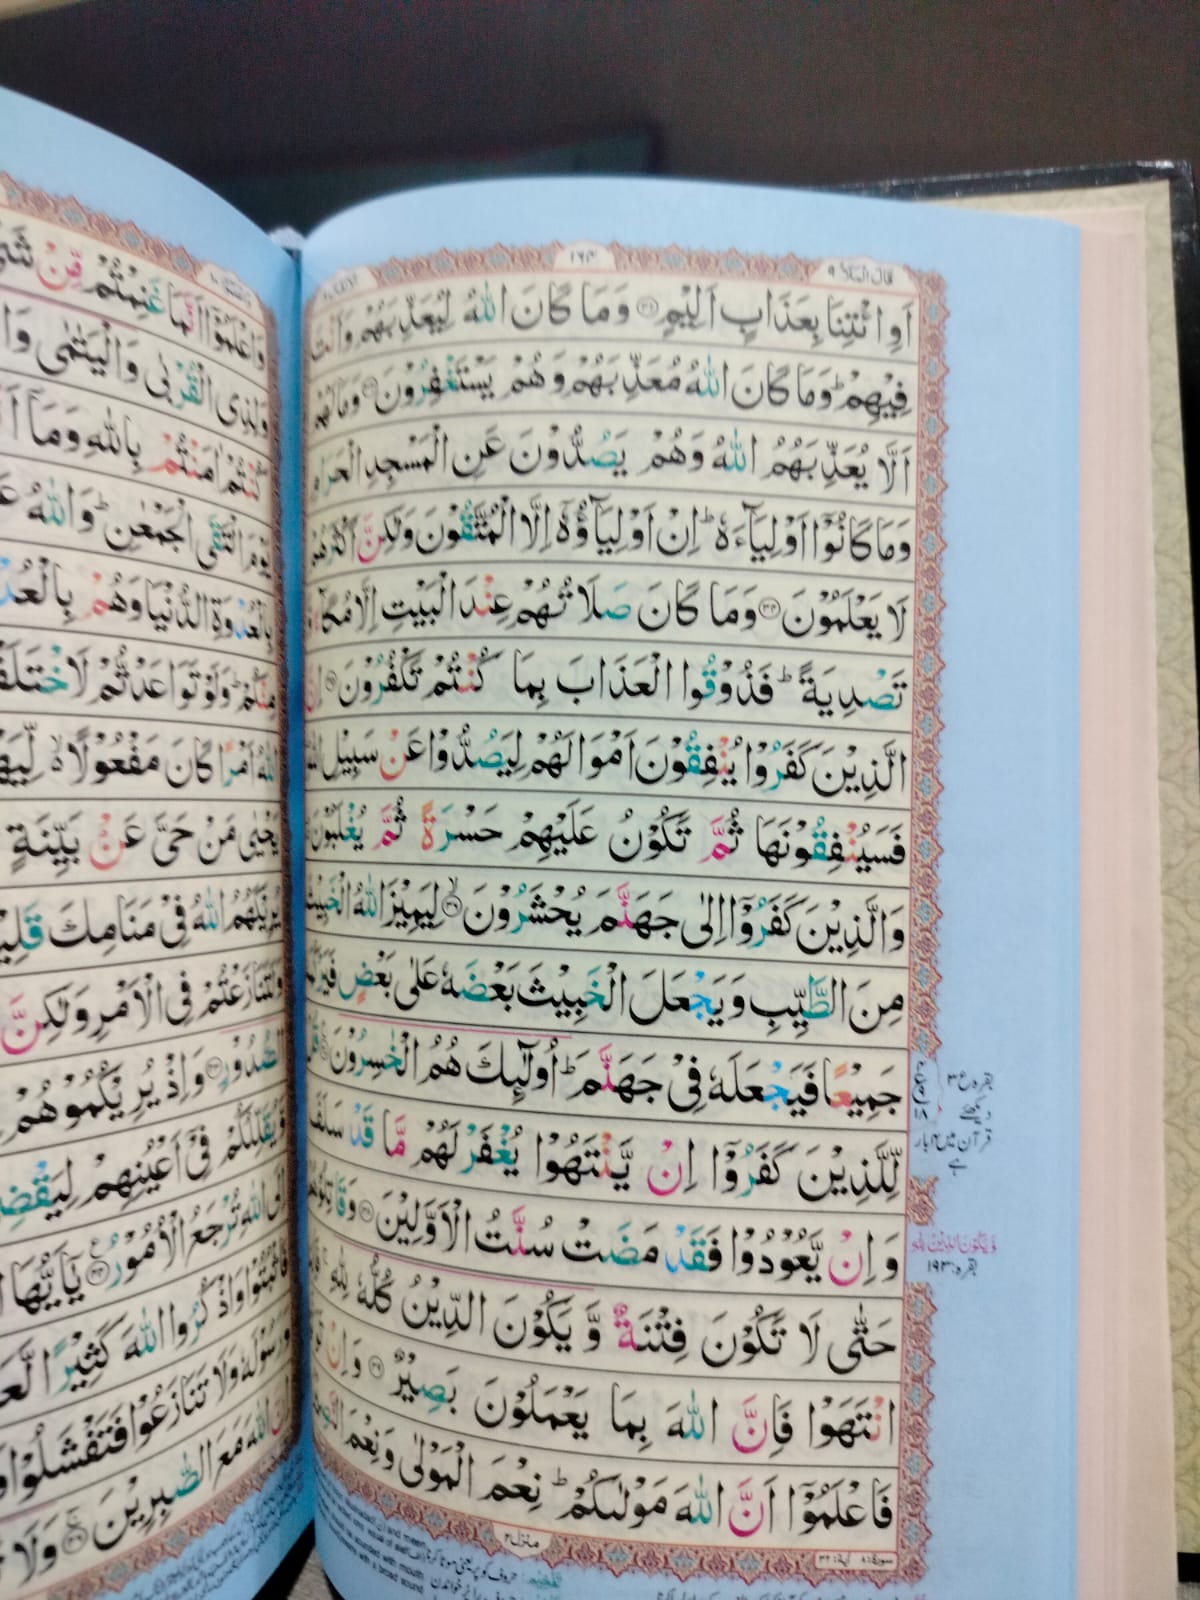 قال الملا ٩
١٦٣
اَوِ ائْتِنَا بِعَذَابٍ اَلِيْمٍ ۝ وَمَا كَانَ اللّٰهُ لِيُعَذِّبَهُمْ وَاَنْتَ
فِيْهِمْ ؕ وَمَا كَانَ اللّٰهُ مُعَذِّبَهُمْ وَهُمْ يَسْتَغْفِرُوْنَ ۝ وَمَا لَهُمْ
اَلَّا يُعَذِّبَهُمُ اللّٰهُ وَهُمْ يَصُدُّوْنَ عَنِ الْمَسْجِدِ الْحَرَامِ
وَمَا كَانُوْۤا اَوْلِيَآءَهٗ ؕ اِنْ اَوْلِيَآؤُهٗۤ اِلَّا الْمُتَّقُوْنَ وَلٰكِنَّ اَكْثَرَهُمْ
لَا يَعْلَمُوْنَ ۝ وَمَا كَانَ صَلَاتُهُمْ عِنْدَ الْبَيْتِ اِلَّا مُكَآءً
تَصْدِيَةً ؕ فَذُوْقُوا الْعَذَابَ بِمَا كُنْتُمْ تَكْفُرُوْنَ ۝ اِنَّ
الَّذِيْنَ كَفَرُوْا يُنْفِقُوْنَ اَمْوَالَهُمْ لِيَصُدُّوْا عَنْ سَبِيْلِ اللّٰهِ
فَسَيُنْفِقُوْنَهَا ثُمَّ تَكُوْنُ عَلَيْهِمْ حَسْرَةً ثُمَّ يُغْلَبُوْنَ
وَالَّذِيْنَ كَفَرُوْۤا اِلٰى جَهَنَّمَ يُحْشَرُوْنَ ۝ لِيَمِيْزَ اللّٰهُ الْخَبِيْثَ
مِنَ الطَّيِّبِ وَيَجْعَلَ الْخَبِيْثَ بَعْضَهٗ عَلٰى بَعْضٍ
جَمِيْعًا فَيَجْعَلَهٗ فِيْ جَهَنَّمَ ؕ اُولٰٓئِكَ هُمُ الْخٰسِرُوْنَ ۝ قُلْ
لِّلَّذِيْنَ كَفَرُوْۤا اِنْ يَّنْتَهُوْا يُغْفَرْ لَهُمْ مَّا قَدْ سَلَفَ
وَاِنْ يَّعُوْدُوْا فَقَدْ مَضَتْ سُنَّتُ الْاَوَّلِيْنَ ۝ وَقَاتِلُوْهُمْ
حَتّٰى لَا تَكُوْنَ فِتْنَةٌ وَّيَكُوْنَ الدِّيْنُ كُلُّهٗ لِلّٰهِ ۚ
انْتَهَوْا فَاِنَّ اللّٰهَ بِمَا يَعْمَلُوْنَ بَصِيْرٌ ۝ وَاِنْ
فَاعْلَمُوْۤا اَنَّ اللّٰهَ مَوْلٰىكُمْ ؕ نِعْمَ الْمَوْلٰى وَنِعْمَ النَّصِيْرُ
منزل ٢
بقرہ ع ٣
دیکھئے
قرآن میں ١٢ بار
ہے
وَيَكُونَ الدِّينُ لِلّٰهِ
بقرہ: ١٩٣
وَاعْلَمُوْۤا اَنَّمَا غَنِمْتُمْ مِّنْ
وَلِذِى الْقُرْبٰى وَالْيَتٰمٰى
كُنْتُمْ اٰمَنْتُمْ بِاللّٰهِ وَمَاۤ
يَوْمَ الْتَقَى الْجَمْعٰنِ ؕ وَاللّٰهُ
بِالْعُدْوَةِ الدُّنْيَا وَهُمْ
مِنْكُمْ ؕ وَلَوْ تَوَاعَدْتُّمْ
اللّٰهُ اَمْرًا كَانَ مَفْعُوْلًا
يَحْيٰى مَنْ حَيَّ عَنْۢ بَيِّنَةٍ
يُرِيْكَهُمُ اللّٰهُ فِيْ مَنَامِكَ
وَلَتَنَازَعْتُمْ فِى الْاَمْرِ وَلٰكِنَّ
الصُّدُوْرِ ۝ وَاِذْ يُرِيْكُمُوْهُمْ
وَّيُقَلِّلُكُمْ فِيْۤ اَعْيُنِهِمْ لِيَقْضِيَ
اِلَى اللّٰهِ تُرْجَعُ الْاُمُوْرُ ۝ يٰۤاَيُّهَا
فَاثْبُتُوْا وَاذْكُرُوا اللّٰهَ كَثِيْرًا
وَرَسُوْلَهٗ وَلَا تَنَازَعُوْا فَتَفْشَلُوْا
اِنَّ اللّٰهَ مَعَ الصّٰبِرِيْنَ ۝ وَلَا